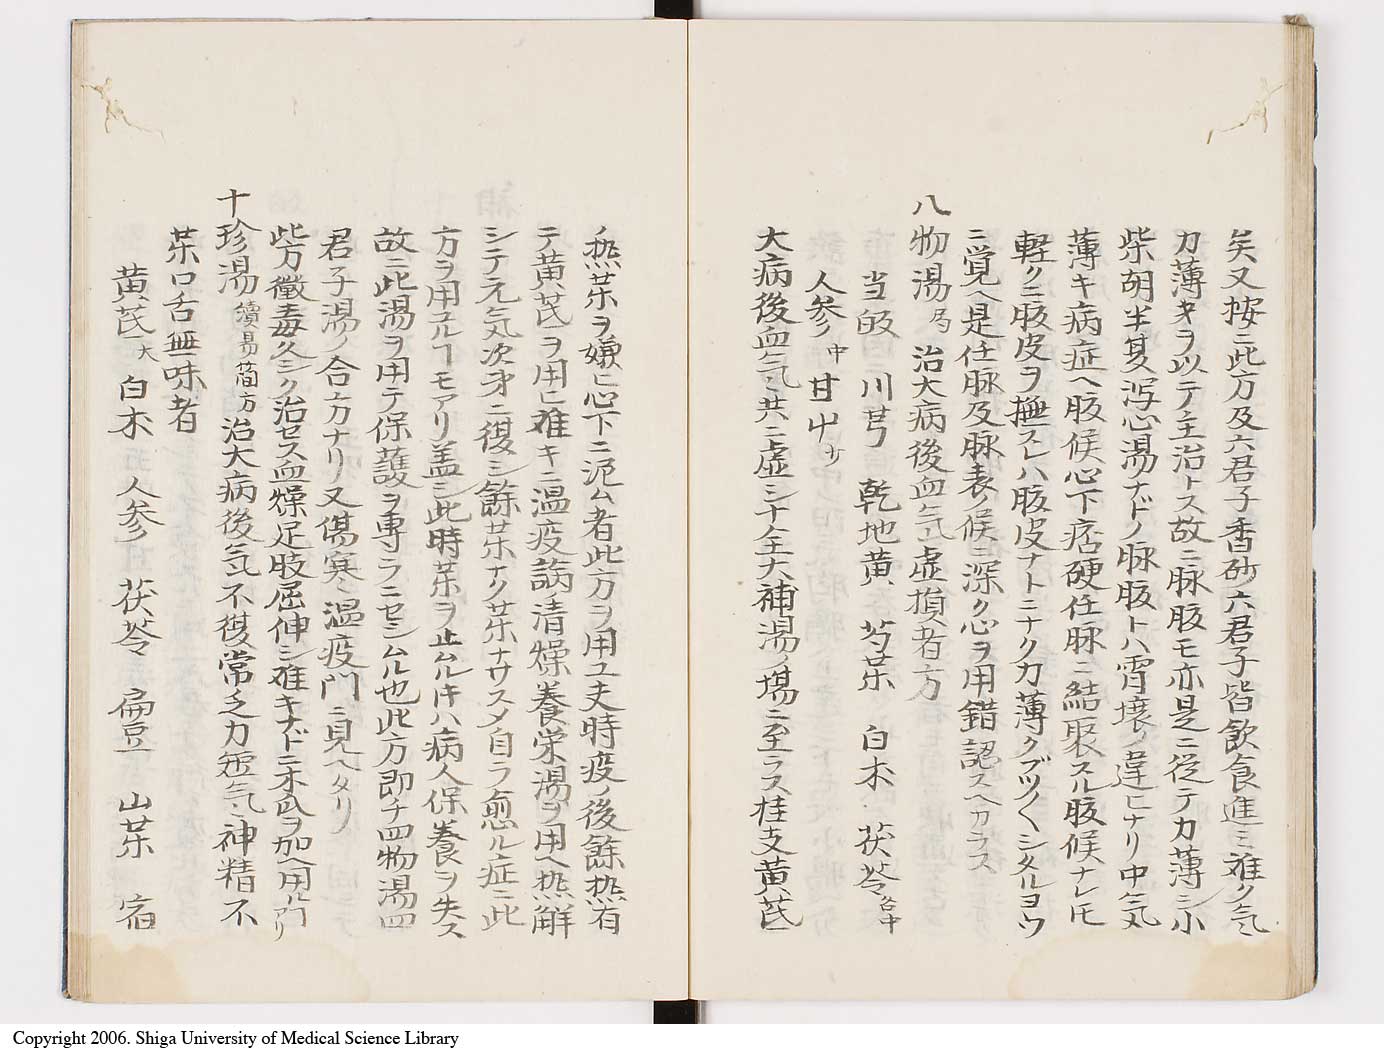 矣又按ニ此方及六君子香砂六君子皆飲食進ミ難ク気
力薄キヲ以テ主治トス故ニ脉腹モ亦是ニ従テ力薄シ小
柴胡半夏瀉心湯ナドノ脉腹トハ霄壌ノ違ヒナリ中気
薄キ病症ヘ腹候心下痞硬任脉ニ結聚スル腹候ナレ𪜈
軽クニ腹皮ヲ撫スレハ腹皮ナトニナクカ薄クブツ〱シタルヨウ
ニ覚ヘ是任脉及脉表ノ候ニ深ク心ヲ用錯認スヘカラス
八物湯 局 治大病後血気虚損者方
当皈 川芎 乾地黄 芍薬 白朮 茯苓各中
人参中 甘艸少
大病後血気ミ共ニ虚シ十全大補湯ノ場ニ至ラス桂支黄芪
ノ熱薬ヲ嫌ヒ心下ニ泥ム者此方ヲ用ユ夫時疫ノ後餘熱有
テ黄芪ヲ用ヒ難キニ温疫論ノ清燥養栄湯ヲ用ヘ熱解
シテ元気次才ニ復シ餘薬ナク薬ナサスメ自ラ愈ル症ニ此
方ヲ用ユルヿモアリ蓋シ此時薬ヲ止ムル𪜈ハ病人保養ヲ失ス
故ニ此湯ヲ用テ保護ヲ専ラニセシムル也此方即チ四物湯四
君子湯ノ合方ナリ又傷寒ミ温疫門ニ見ヘタリ
此方黴毒久シク治セス血燥足肢屈伸シ難キナドニ木瓜ヲ加ヘ用ルヿアリ
十珍湯 續易簡方 治大病後気不復常乏力短気ミ神精不
榮口舌無味者
黄芪大 白朮 人参 茯苓 扁豆 山薬 宿
Copyright 2006. Shiga University of Medical Science Library